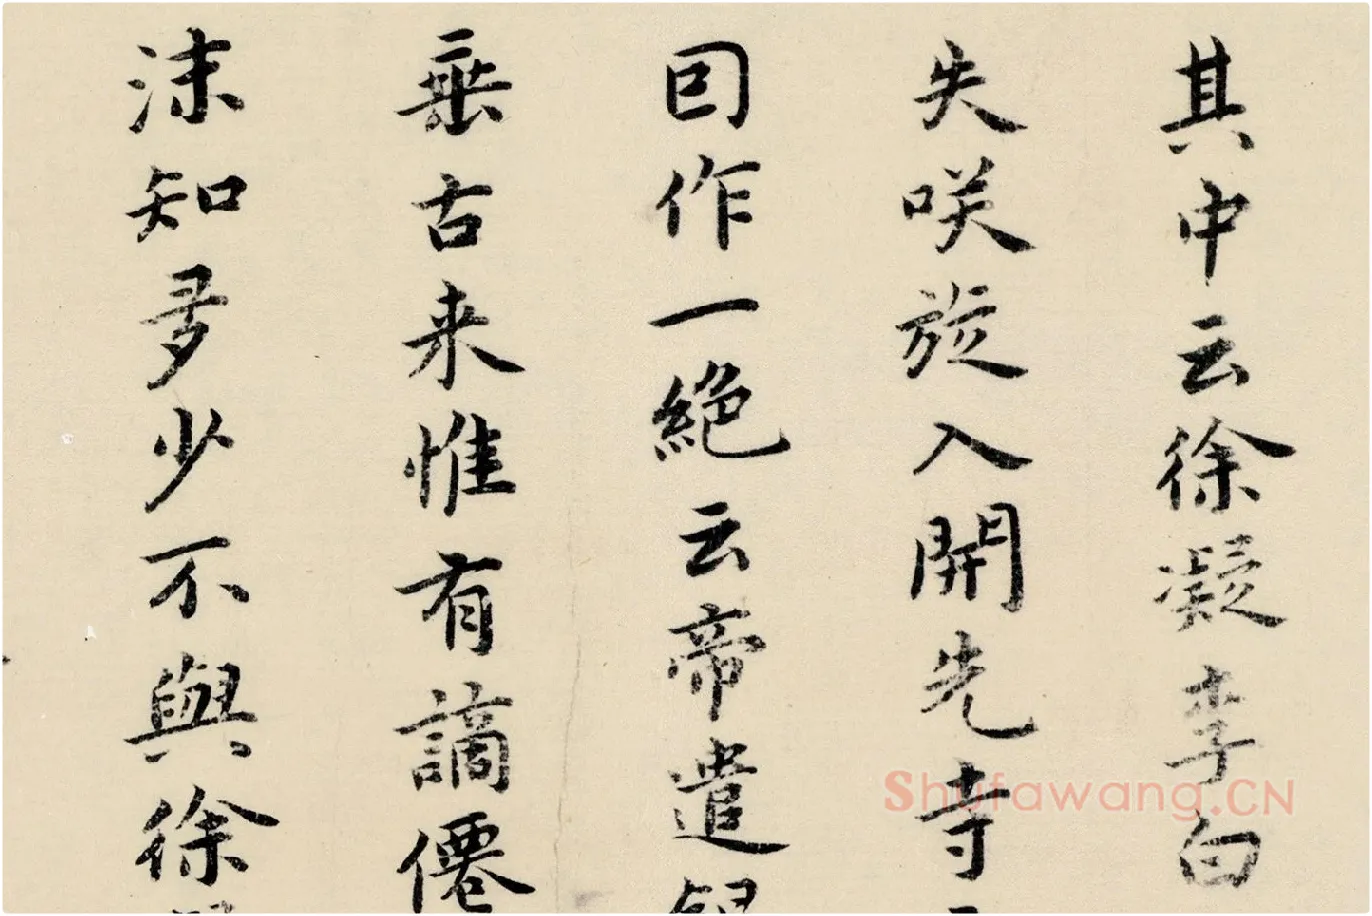 其中云徐凝李白
失咲旋入開先寺
囙作一絶云帝遣銀
垂古来惟有謫僊
沫知多少不與徐
Shufawang.CN